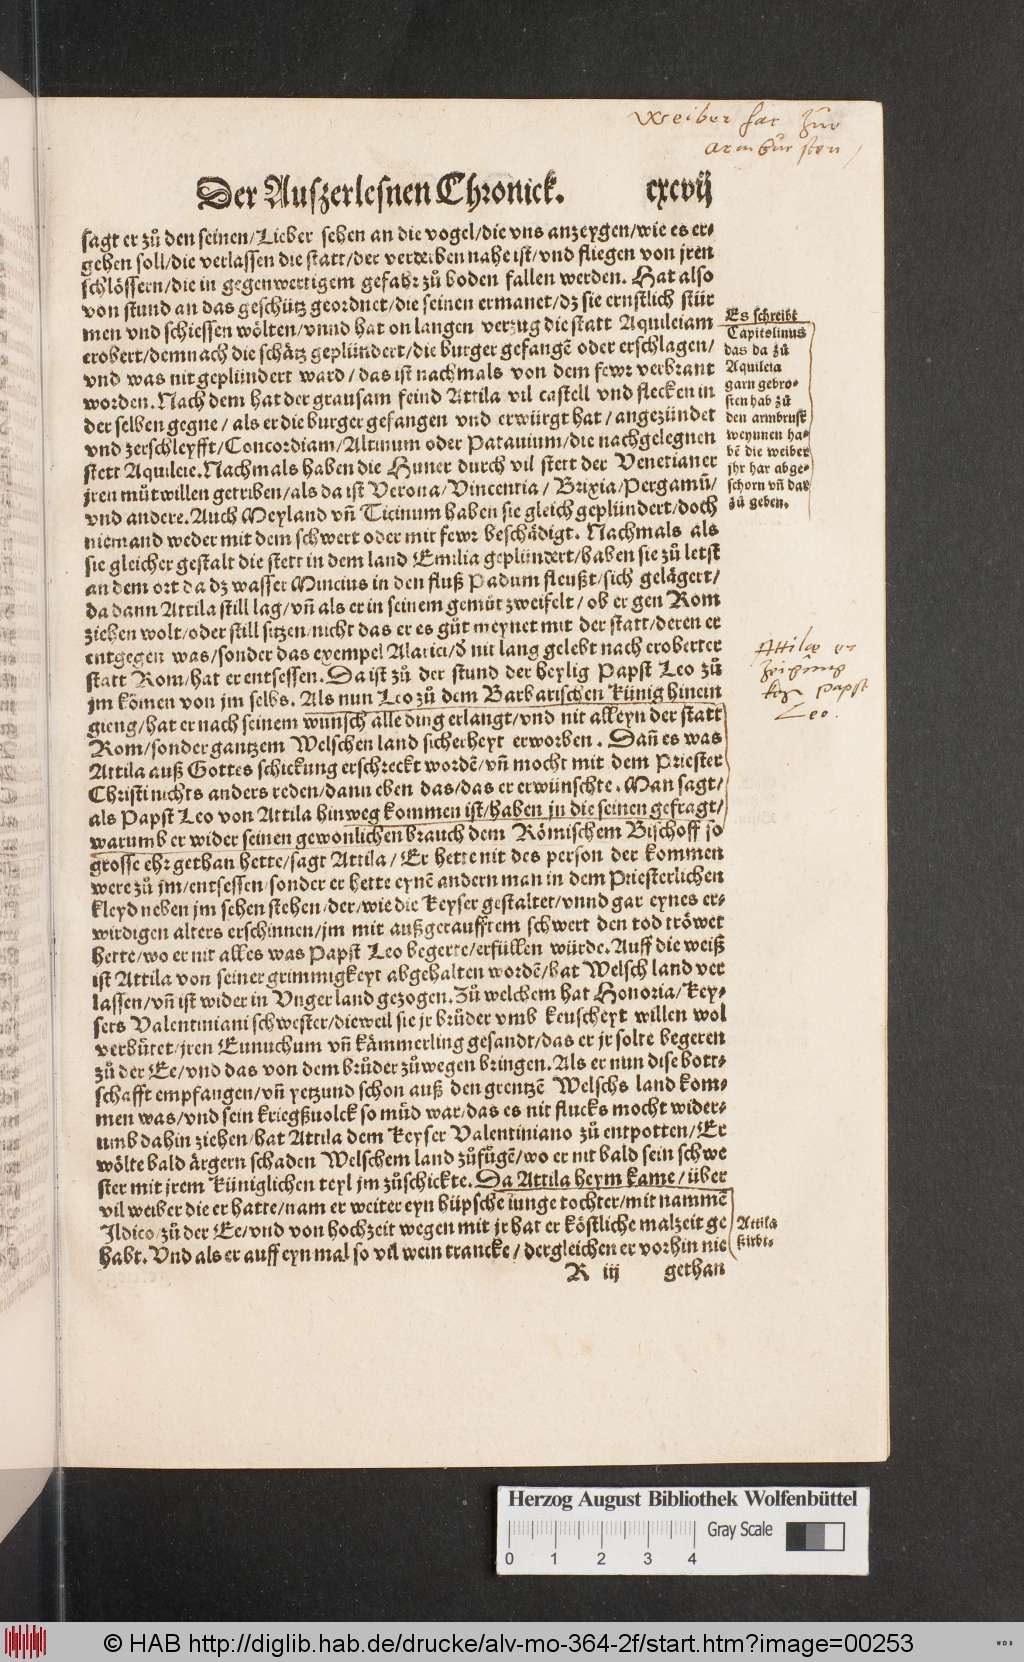 Weiber har zur
armbrusten
Der Auszerlesnen Chronick. cxcvij
sagt er zů den seinen/Lieber sehen an die vogel/die vns anzeygen/wie es er-
gehen soll/die verlassen die statt/der verderben nahe ist/vnd fliegen von jren
schlössern/die in gegenwertigem gefahr zů boden fallen werden. Hat also
von stund an das geschütz geordnet/die seinen ermanet/dz sie ernstlich stür
men vnd schiessen wölten/vnnd hat on langen verzug die statt Aquileiam
erobert/demnach die schätz geplündert/die burger gefangẽ oder erschlagen/
vnd was nit geplündert ward/das ist nachmals von dem fewr verbrant
worden. Nach dem hat der grausam feind Attila vil castell vnd flecken in
der selben gegne/als er die burger gefangen vnd erwürgt hat/angezündet
vnd zerschleyfft/Concordiam/Altinum oder Patauium/die nachgelegnen
stett Aquileie. Nachmals haben die Huner durch vil stett der Venetianer
jren můtwillen getriben/als da ist Verona/Vincentia/Brixia/Pergamũ/
vnd andere. Auch Meyland vñ Ticinum haben sie gleich geplündert/doch
niemand weder mit dem schwert oder mit fewr beschädigt. Nachmals als
sie gleicher gestalt die stett in dem land Emilia geplündert/haben sie zů letst
an dem ort da dz wasser Mincius in den fluß Padum fleußt/sich gelägert/
da dann Attila still lag/vñ als er in seinem gemüt zweifelt/ob er gen Rom
ziehen wolt/oder still sitzen/nicht das er es gůt meynet mit der statt/deren er
entgegen was/sonder das exempel Alarici/ď nit lang gelebt nach eroberter
statt Rom/hat er entsessen. Da ist zů der stund der heylig Papst Leo zů
jm kõmen von jm selbs. Als nun Leo zů dem Barbarischen Künig hinein
gieng/hat er nach seinem wunsch alle ding erlangt/vnd nit alleyn der statt
Rom/sonder gantzem Welschen land sicherheyt erworben. Dañ es was
Attila auß Gottes schickung erschreckt wordẽ/vñ mocht mit dem Priester
Christi nichts anders reden/dann eben das/das er erwünschte. Man sagt/
als Papst Leo von Attila hinweg kommen ist/haben jn die seinen gefragt/
warumb er wider seinen gewonlichen brauch dem Römischem Bischoff so
grosse ehr gethan hette/sagt Attila/Er hette nit des person der kommen
were zů jm/entsessen/sonder er hette eynẽ andern man in dem Priesterlichen
kleyd neben jm sehen stehen/der/wie die Keyser gestaltet/vnnd gar eynes er-
wirdigen alters erschinnen/jm mit außgeraufftem schwert den tod tröwet
hette/wo er nit alles was Papst Leo begerte/erfüllen würde. Auff die weiß
ist Attila von seiner grimmigkeyt abgehalten wordẽ/hat Welsch land ver
lassen/vñ ist wider in Vngerland gezogen. Zů welchem hat Honoria/Key-
sers Valentiniani schwester/dieweil sie jr brůder vmb keuscheyt willen wol
verhütet/jren Eunuchum vñ kämmerling gesandt/das er jr solte begeren
zů der Ee/vnd das von dem brůder zůwegen bringen. Als er nun dise bott-
schafft empfangen/vñ yetzund schon auß den grentzẽ Welschs land kom-
men was/vnd sein kriegßuolck so můd war/das es nit flucks mocht wider-
umb dahin ziehen/hat Attila dem Keyser Valentiniano zů entpotten/Er
wölte bald ärgern schaden Welschem land zůfůgẽ/wo er nit bald sein schwe
ster mit jrem Küniglichen teyl jm zůschickte. Da Attila heym kame/über
vil weiber die er hatte/nam er weiter eyn hüpsche iunge tochter/mit nammẽ
Jldico/zů der Ee/vnd von hochzeit wegen mit jr hat er köstliche malzeit ge
habt. Vnd als er auff eyn mal so vil wein trancke/dergleichen er vorhin nie
R iij gethan
Es schreibt
Capitolinus
das da zů
Aquileia
garn gebro-
sten hab zů
den armbrust
weynnen ha-
bẽ die weiber
jhr har abge-
schorn vñ dar
zů geben.
Attilæ er
kegn Papst
Leo.
Attila
stirbt-
Herzog August Bibliothek Wolfenbüttel
Gray Scale
0 1 2 3 4
© HAB http://diglib.hab.de/drucke/alv-mo-364-2f/start.htm?image=00253